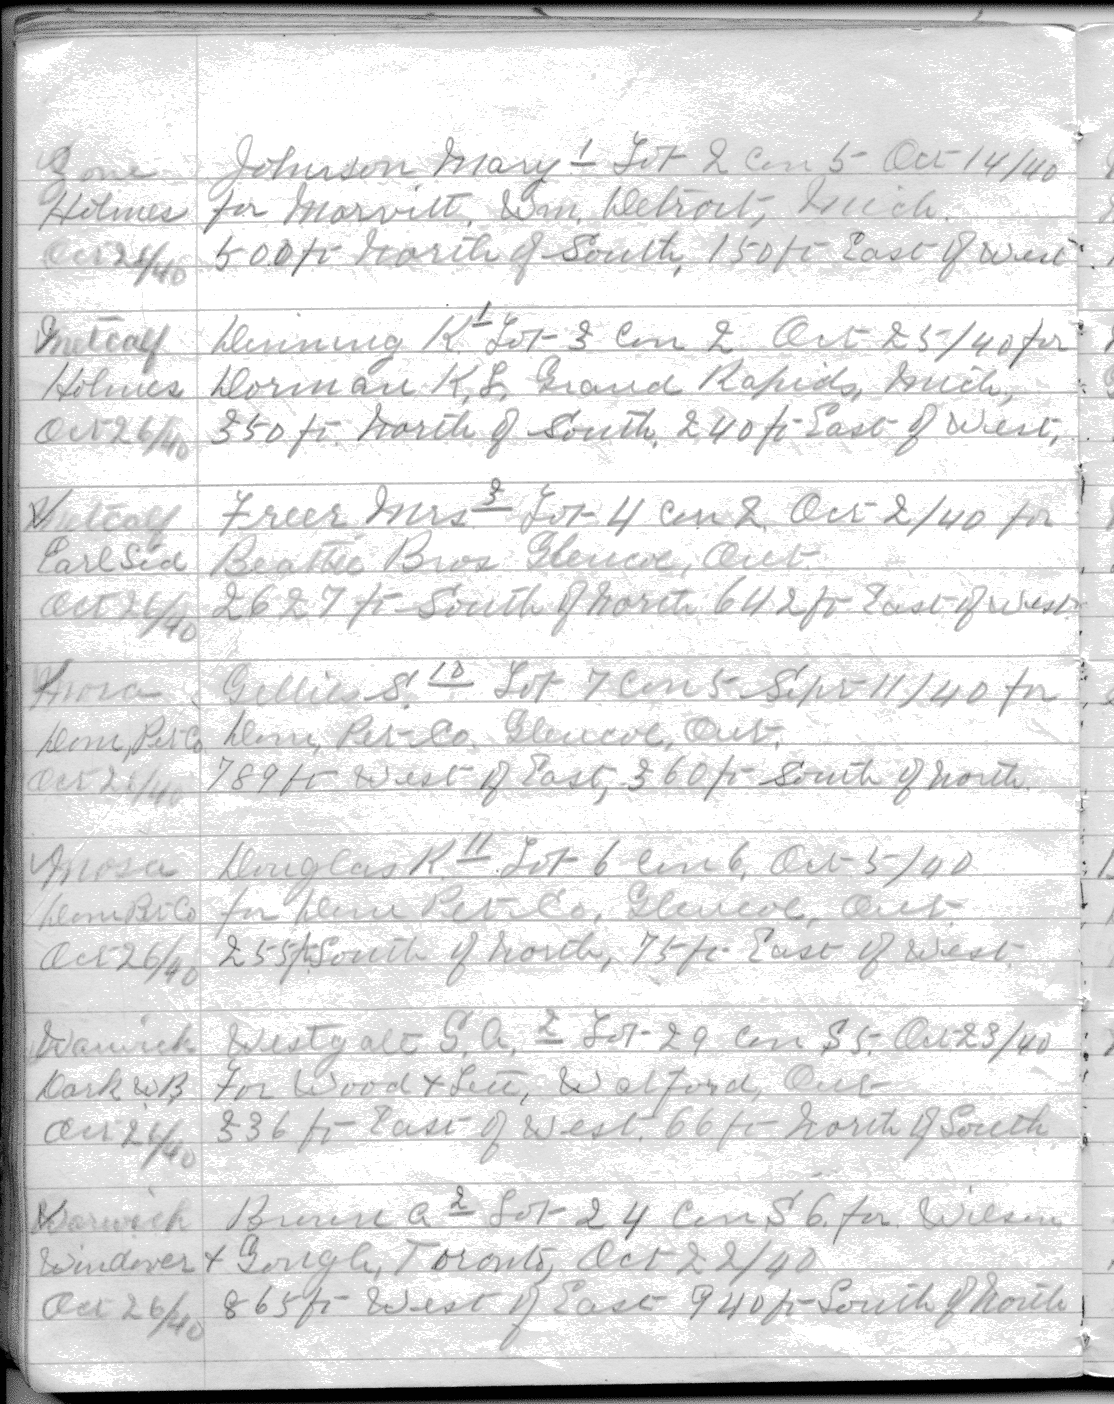 Zone Johnson Mary 1 Lot 2 Con 5 Oct 14/40
Holmes for Morvitt, Wm. Detroit, Mich.
Oct 26/40 500 ft North of South, 150 ft East of West
Metcalf Dinning K. 1 Lot 3 Con 2 Oct 25/40 for
Holmes Dorman K. L. Grand Rapids, Mich,
Oct 26/40 350 ft. North of South, 240 ft East of West,
Metcalf Freer Mrs 3 Lot 4 Con 2. Oct 2/40 for
Earl Sid Beattie Bros Glencoe, Ont.
Oct 26/40 2627 ft South of North 642 ft East of West.
Mosa Gillies S. 10 Lot 7 Con 5 Sept 11/40 for
Dom, Pet Co Dom, Pet Co. Glencoe, Ont.
Oct 26/40 789 ft West of East, 360 ft South of North.
Mosa Douglas K. 11 Lot 6 Con 6, Oct 5/40
Dom Pet Co for Dom Pet Co, Glencoe, Ont.
Oct 26/40 255 ft South of North, 75 ft East of West.
Warwick Westgate G. A. 2 Lot 29 Con S 5. Oct 23/40
Dark W B For Wood + Watford, Ont
Oct 26/40 336 ft East of West. 66 ft North of South
Warwick A 2 Lot 24 Con S 6. for Wilson
Windover + Gough, Toronto, Oct 22/40
Oct 26/40 865 ft West of East 940 ft South of North